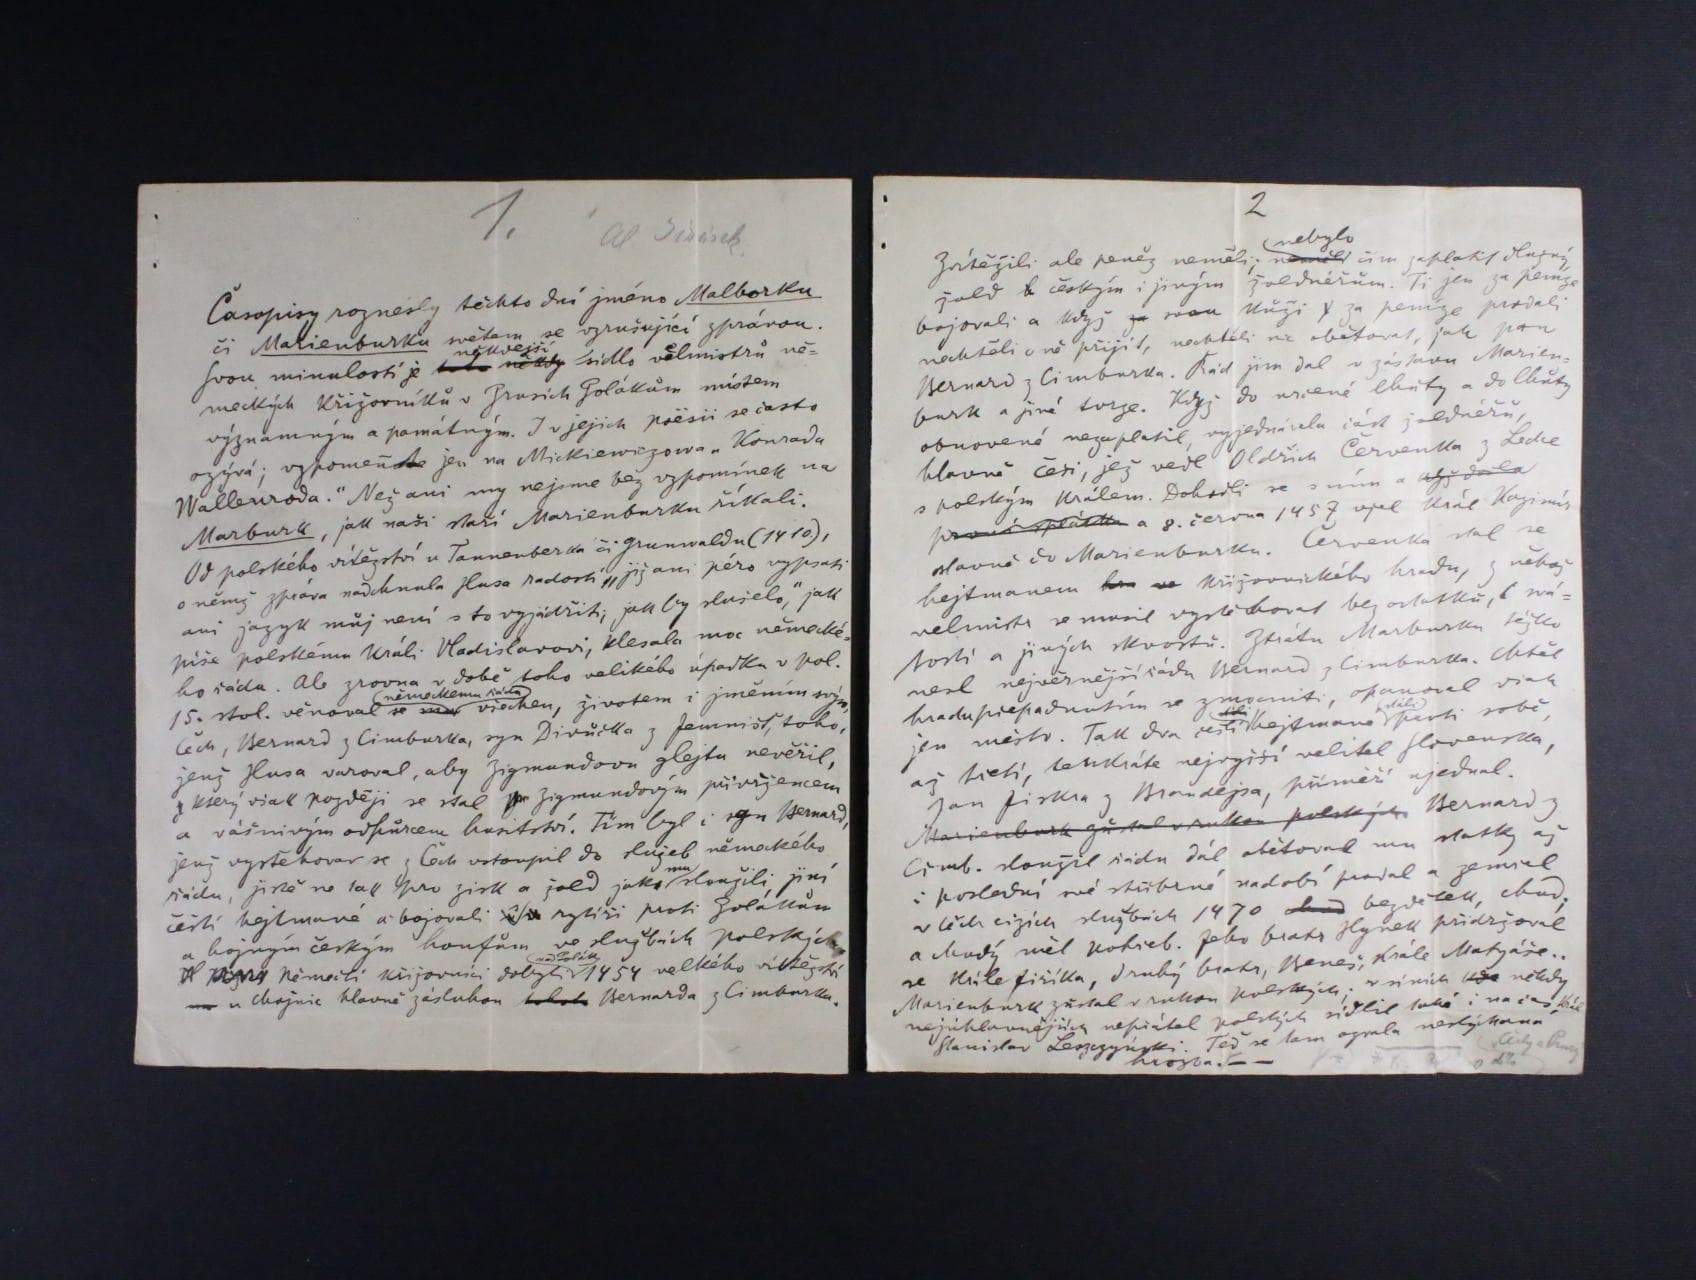 1.
Al. Jirásek
Časopisy roznesly těchto dní jméno Malborku
či Marienburku světem se vzrušující zprávou.
Svou minulostí je někdejší sídlo velmistrů ně-
meckých křižovníků v Prusích Polákům místem
významným a památným. I v jejich poësii se často
ozývá; vzpomeňte jen na Mickiewiczowa „Konrada
Wallenroda." Než ani my nejsme bez vzpomínek na
Marburk, jak naši staří Marienburku říkali.
Od polského vítězství u Tannenberka či Grunwaldu (1410),
o němž zpráva nadchnula Husa radostí „již ani péro vypsati
ani jazyk můj není s to vyjádřiti, jak by slušelo," jak
píše polskému králi Vladislavovi, klesala moc německé-
ho řádu. Ale zrovna v době toho velikého úpadku v pol.
15. stol. věnoval se německému řádu všechen, životem i jměním svým,
Čech, Bernard z Cimburka, syn Divůčka z Jemniště, toho,
jenž Husa varoval, aby Zigmundovu glejtu nevěřil,
který však později se stal Zigmundovým přívržencem
a vášnivým odpůrcem husitství. Tím byl i syn Bernard,
jenž vystěhovav se z Čech vstoupil do služeb německého
řádu, jistě ne tak pro zisk a žold jako mu sloužili jiní
čeští hejtmané a bojovali rytíři proti Polákům
a bojovným českým houfům ve službách polských.
Němečtí křižovníci dobyli nad Polák 1454 velkého vítězství
u Chojnic hlavně zásluhou Bernarda z Cimburka.
2
Zvítězili ale peněz neměli; nebylo čím zaplatit dlužný
žold českým i jiným žoldnéřům. Ti jen za peníze
bojovali a když svou kůži za peníze prodali
nechtěli o ně přijít, nechtěli nic obětovat, jak pan
Bernard z Cimburka. Řád jim dal v zástavu Marien-
burk a jiné tvrze. Když do určené lhůty a do lhůty
obnovené nezaplatil, vyjednávala část žoldnéřů,
hlavně Češi, jež vedl Oldřich Červenka z Ledec
s polským králem. Dohodli se s ním a když dala
první splátka a 8. června 1457 vjel král Kazimír
slavně do Marienburku. Červenka stal se
hejtmanem křižovnického hradu, z něhož
velmistr se musil vystěhovat bez ostatků, svá-
tostí a jiných skvostů. Ztrátu Marburku těžko
nesl nejvěrnější řádu Bernard z Cimburka. Chtěl
hradu přepadnutím se zmocniti, opanoval však
jen město. Tak dva čeští hejtmané stáli proti sobě,
až třetí, tenkráte nejvyšší velitel Slovenska,
Jan Jiskra z Brandejsa, příměří ujednal.
Marienburk zůstal v rukou polských. Bernard z
Cimb. sloužil řádu dál obětoval mu statky až
i poslední své stříbrné nádobí prodal a zemřel
v těch cizích službách 1470 bezdětek, chud,
a chudý měl pohřeb. Jeho bratr Hynek přidržoval
se krále Jiříka, druhý bratr, Beneš, krále Matyáše..
Marienburk zůstal v rukou polských; v síních kde někdy
nejúhlavnějších nepřátel polských sídlil také i na čas král
Stanislav Leszczyński. Teď se tam ozvala neslýchaná
hrozba. — —